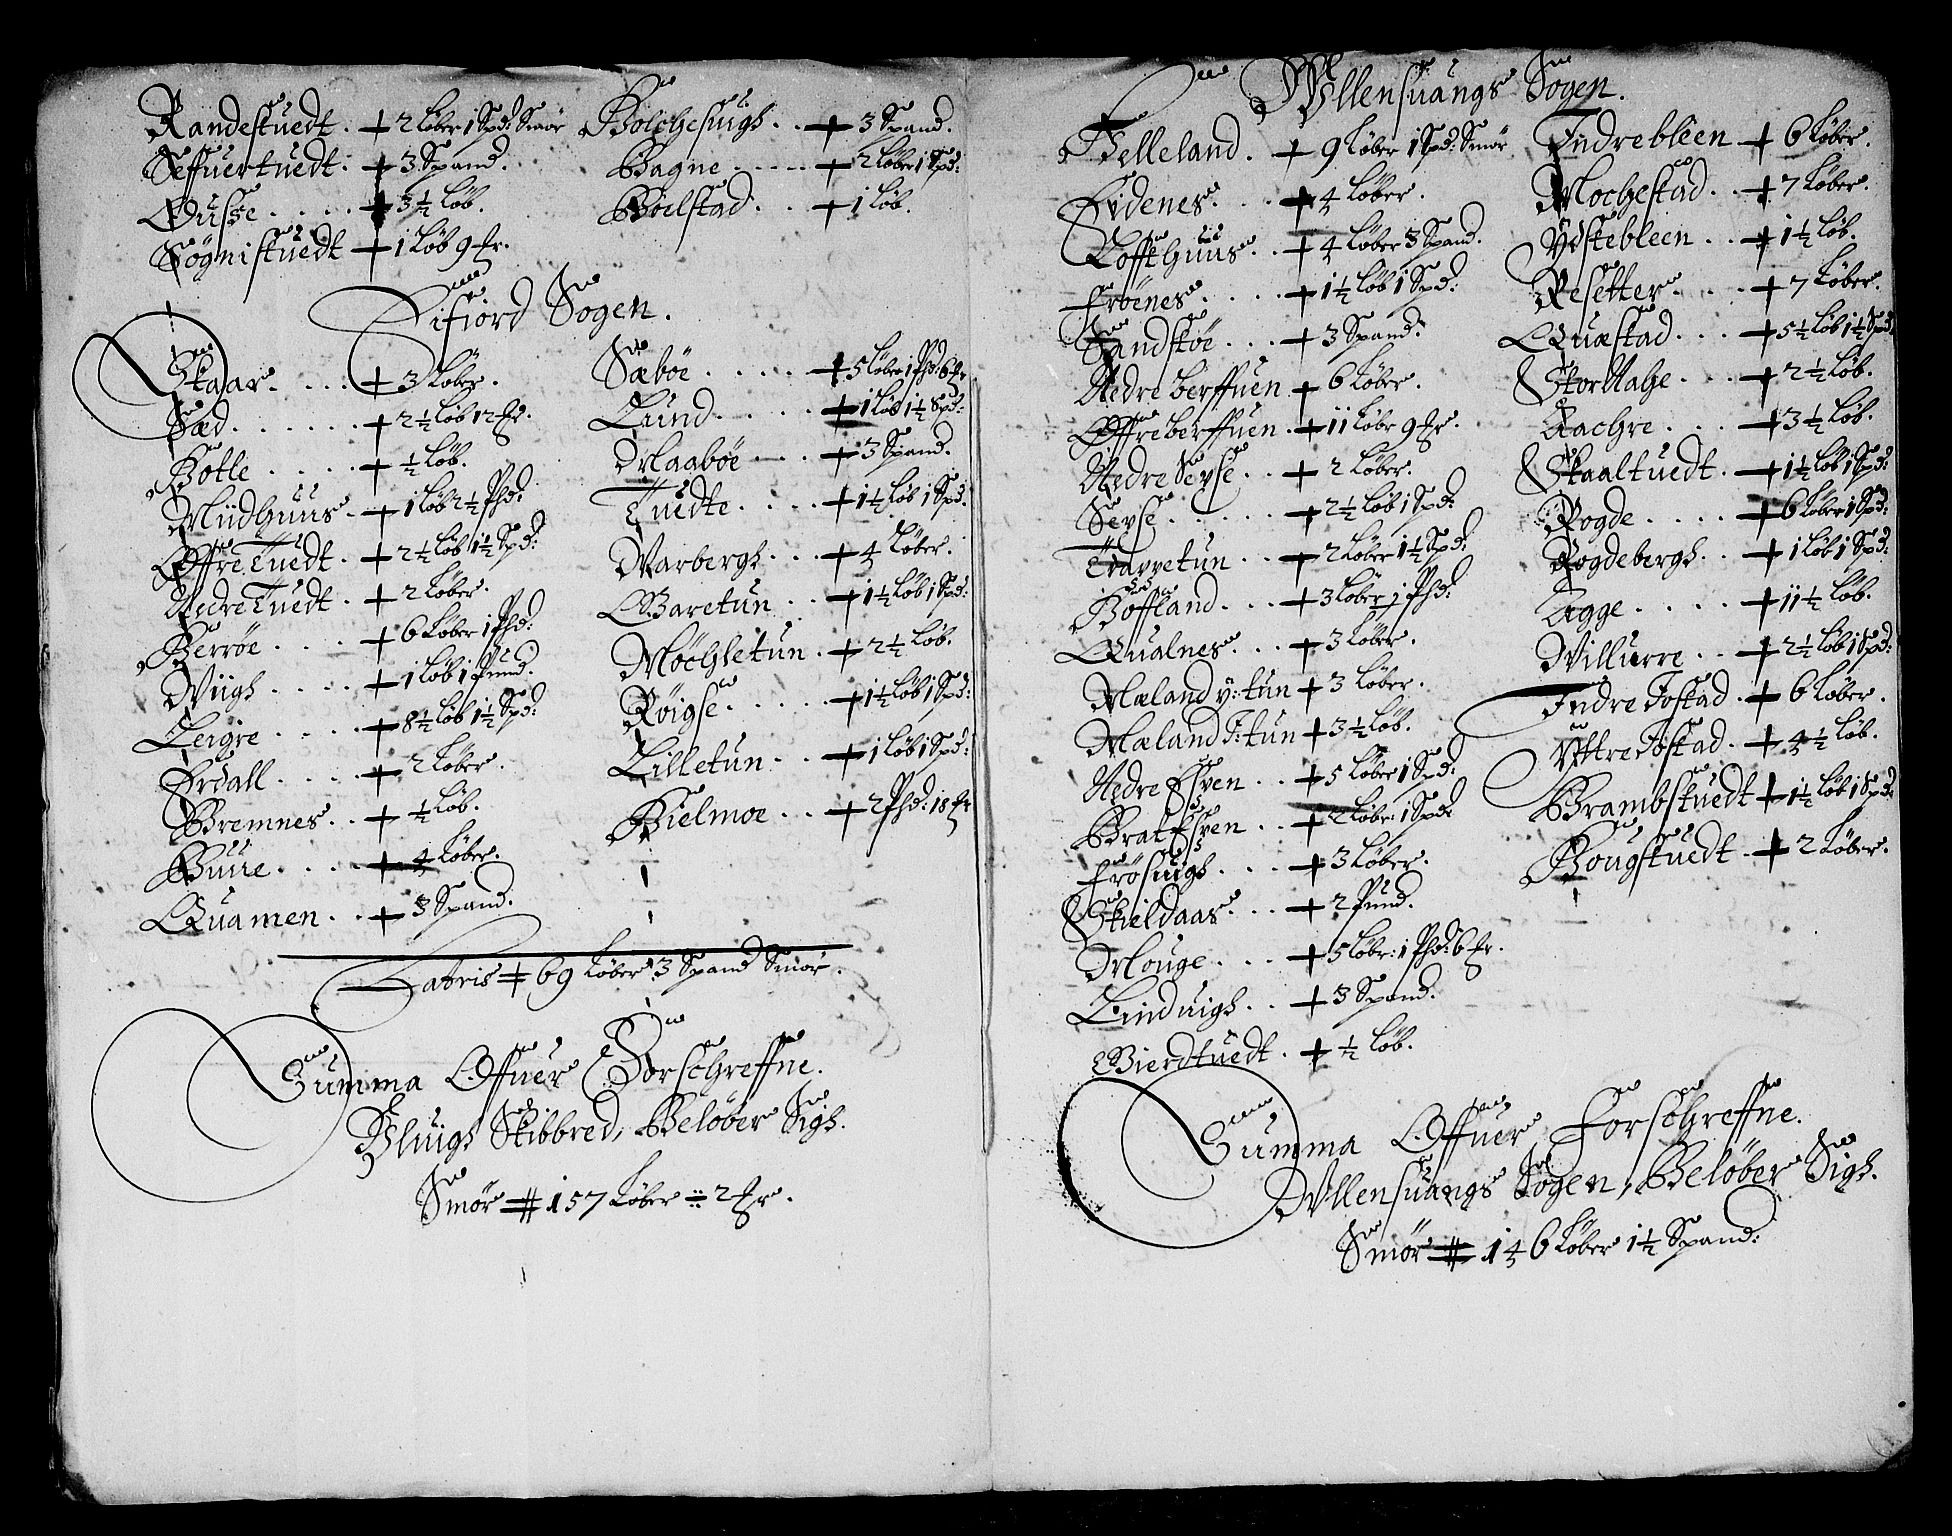 Randestuedt. + 2 Løber 1 Spd: Smör
Seffuertuedt. + 3 Spand.
Dusse.... + 3½ Løb.
Søgnistuedt + 1 Løb 9 Hr.
Bolchesuigh.. + 3 Spand.
Hagne.... + 2 Løber 1 Spd:
Böelstad... + 1 Løb.
Eifiord Sogen.
Skaar.... + 3 Løber.
Sæd...... + 2½ Løb 12 Hr.
Botle.... + ½ Løb.
Miidhuus. + 1 Løb 2½ Phd:
Offre Tuedt. + 2½ Løb 1½ Spd:
Nedre Tuedt. + 2 Løber.
Berröe... + 6 Løber 1 Phd:
Wiigh.... + 1 Løb 1 Pund.
Leigre.... + 8½ Løb 1½ Spd:
Erdall.... + 2 Løber.
Bremnes.. + ½ Løb.
Buue.... + 4 Løber.
Quamen.. + 3 Spand.
Sæböe.... + 5 Løber 1 Phd: 6 Hr
Lund..... + 1 Løb 1½ Spd:
Maaböe... + 3 Spand.
Tuedte.... + 1½ Løb 1 Spd:
Warbergh... + 4 Løber.
Garetun.. + 1½ Løb 1 Spd:
Möchletun. + 2½ Løb.
Röigse..... + 1½ Løb 1 Spd:
Lilletun.. + 1 Løb 1 Spd:
Hielmoe... + 2 Phd: 18 Hr
Lateris # 69 Løber 3 Spand Smör.
Summa Offuer Forschreffne.
Uluigh Skibbred, Beløber Sigh.
Smör # 157 Løber ÷ 2 Hr.
Ullensuangs Sogen.
Helleland. + 9 Løber 1 Spd: Smör
Eidenes... + 4 Løber.
Loffthuus.. + 4 Løber 3 Spand.
Fröenes.... + 1½ Løb 1 Spd:
Sandstöe... + 3 Spand:
Nedre Berffuen + 6 Løber.
Offre berffuen. + 11 Løbr 9 Hr.
Nedre Seyse.. + 2 Løber.
Seyse...... + 2½ Løb 1 Spd:
Traaetun... + 2 Løber 1½ Spd:
Hoffland... + 3 Løber 1 Phd:
Qualnes... + 3 Løber.
Mæland y: tun + 3 Løber.
Mæland I: tun + 3½ Løb.
Nedre Esven.. + 5 Løber 1 Spd:
Brat Esven.. + 2 Løber: 1 Spd:
Frösuigh... + 3 Løber.
Skieldaas... + 2 Pund.
Mouge... + 5 Løbr: 1 Phd: 6 Hr.
Linduigh.. + 3 Spand.
Bierdtuedt. + ½ Løb.
Indrebleen + 6 Løber.
Mochestad.. + 7 Løber.
Ydstebleen.. + 1½ Løb.
Resetter.... + 7 Løber.
Quæstad... + 5½ Løb 1½ Spd
Stor Nahe... + 2½ Løb.
Aachre.... + 3½ Løb.
Skaaltuedt. + 1½ Løb 1 Spd:
Rogde.... + 6 Løber 1 Spd:
Rogdebergh.. + 1 Løb 1 Spd:
Agge.... + 11½ Løb.
Willurre.. + 2½ Løb 1 Spd:
Indre Jostad. + 6 Løber.
Yttre Jostad. + 4½ Løb.
Brambstuedt + 1½ Løb 1 Spd:
Hougstuedt. + 2 Løber.
Summa Offuer Forschreffne.
Ullensuangs Sogen, Beløber Sigh.
Smör # 146 Løber 1½ Spand: